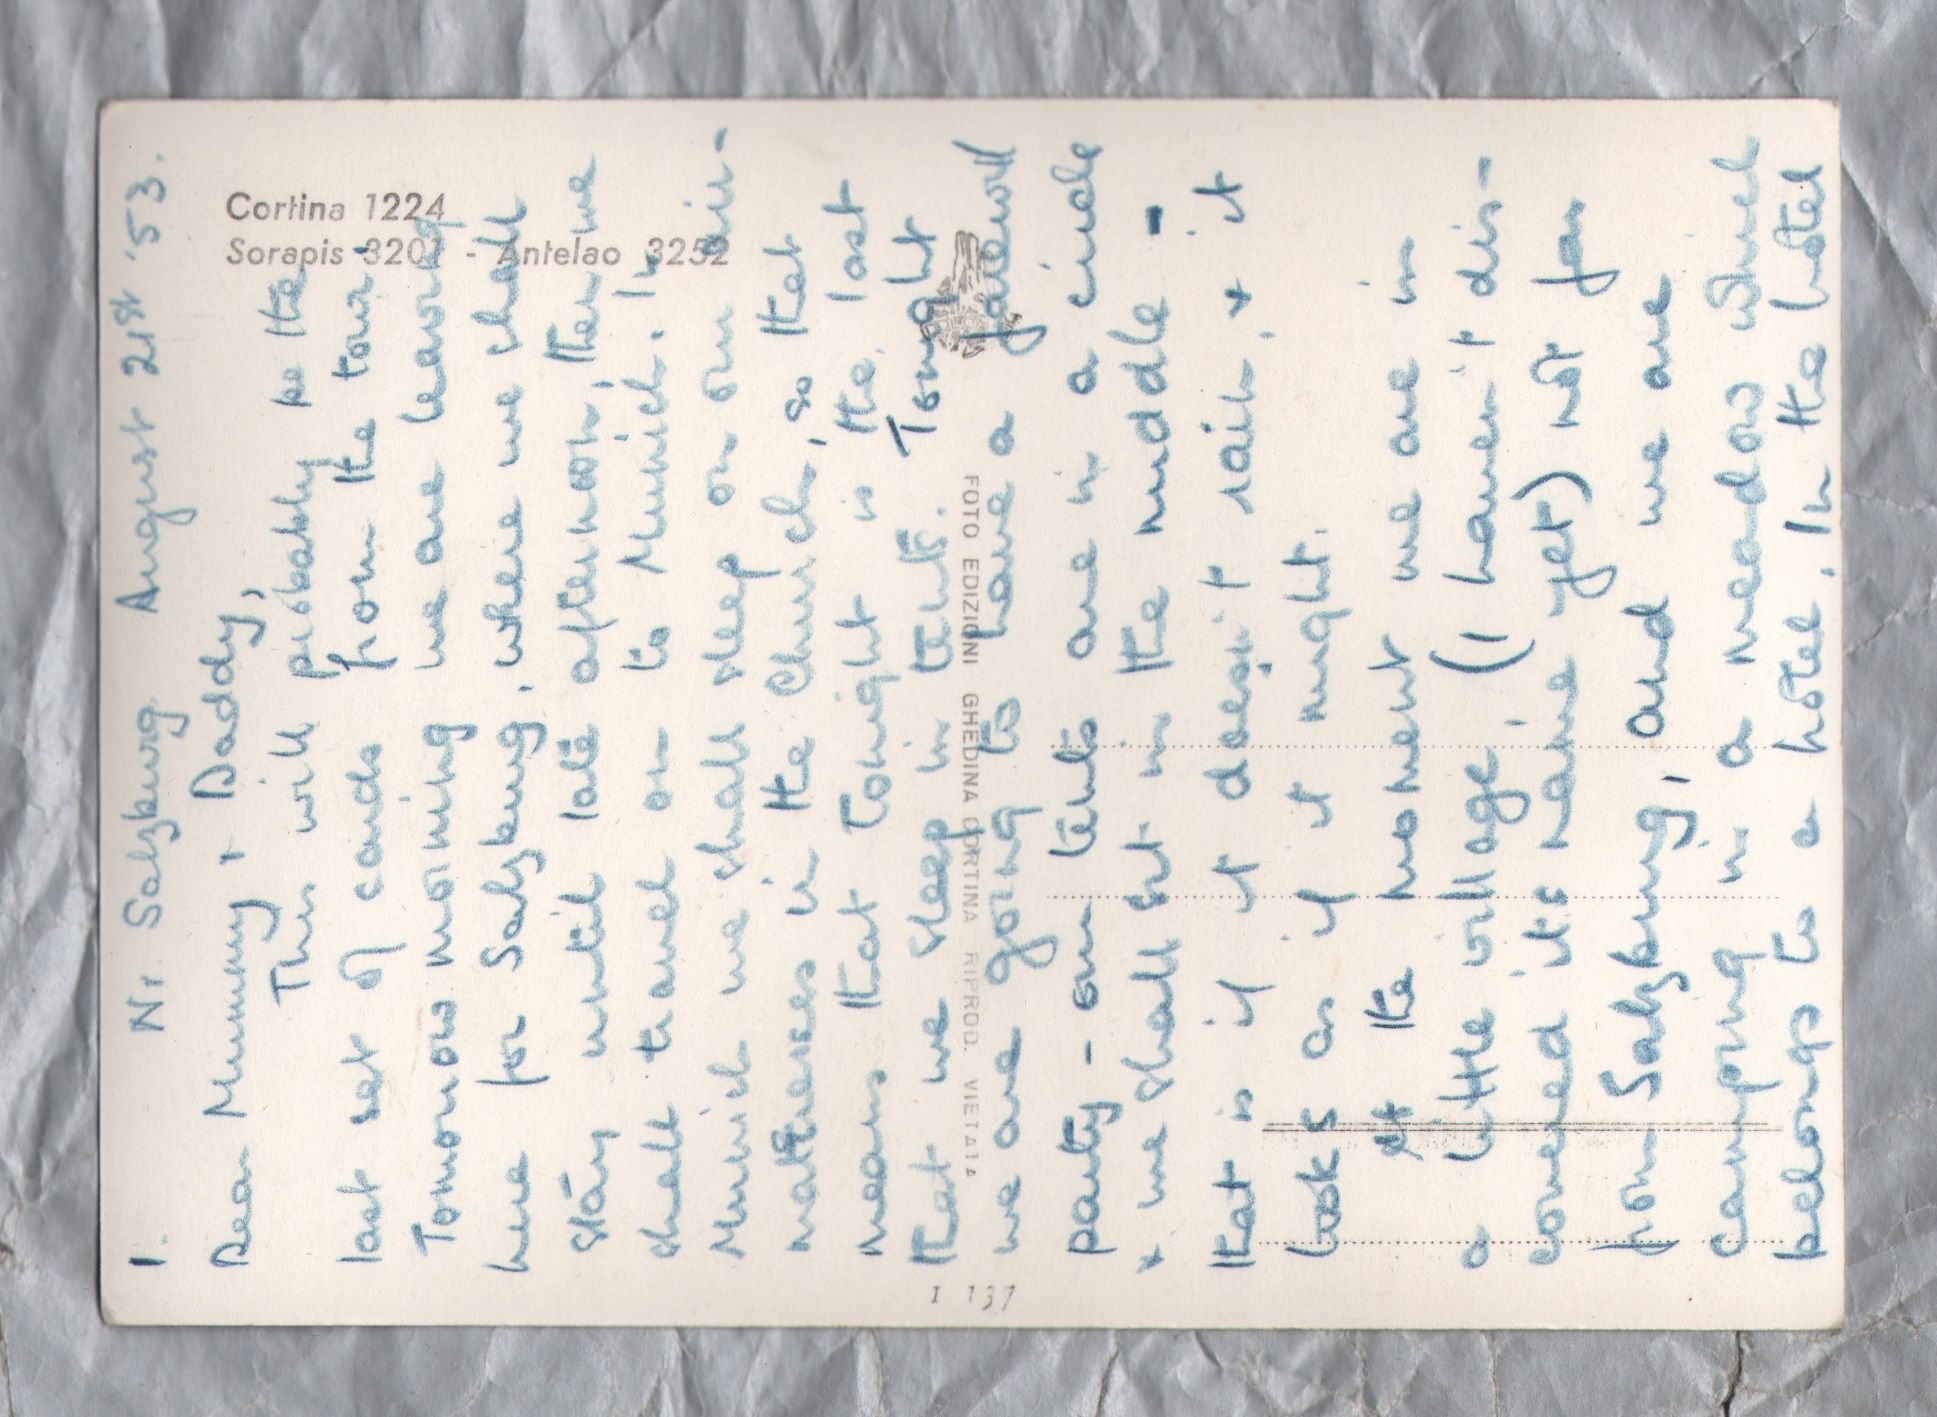 1. Nr. Salzburg. August 21st '53.
Dear Mummy + Daddy,
This will probably be the
last set of cards from the tour.
Tomorrow morning we are leaving
here for Salzburg, where we shall
stay until late afternoon, then we
shall travel on to Munich. In
Munich we shall sleep on our air-
mattresses in the Church, so that
means that tonight is the last
that we sleep in tents. Tonight
we are going to have a farewell
party - our tents are in a circle
+ we shall sit in the middle -
that is if it doesn't rain, + it
looks as if it might.
At the moment we are in
a little village (I haven't dis-
covered its name yet) not far
from Salzburg, and we are
camping in a meadow which
belongs to a hotel. In the hotel
Cortina 1224
Sorapis 3201 - Antelao 3252
FOTO EDIZIONI GHEDINA CORTINA RIPROD. VIETATA
I 137